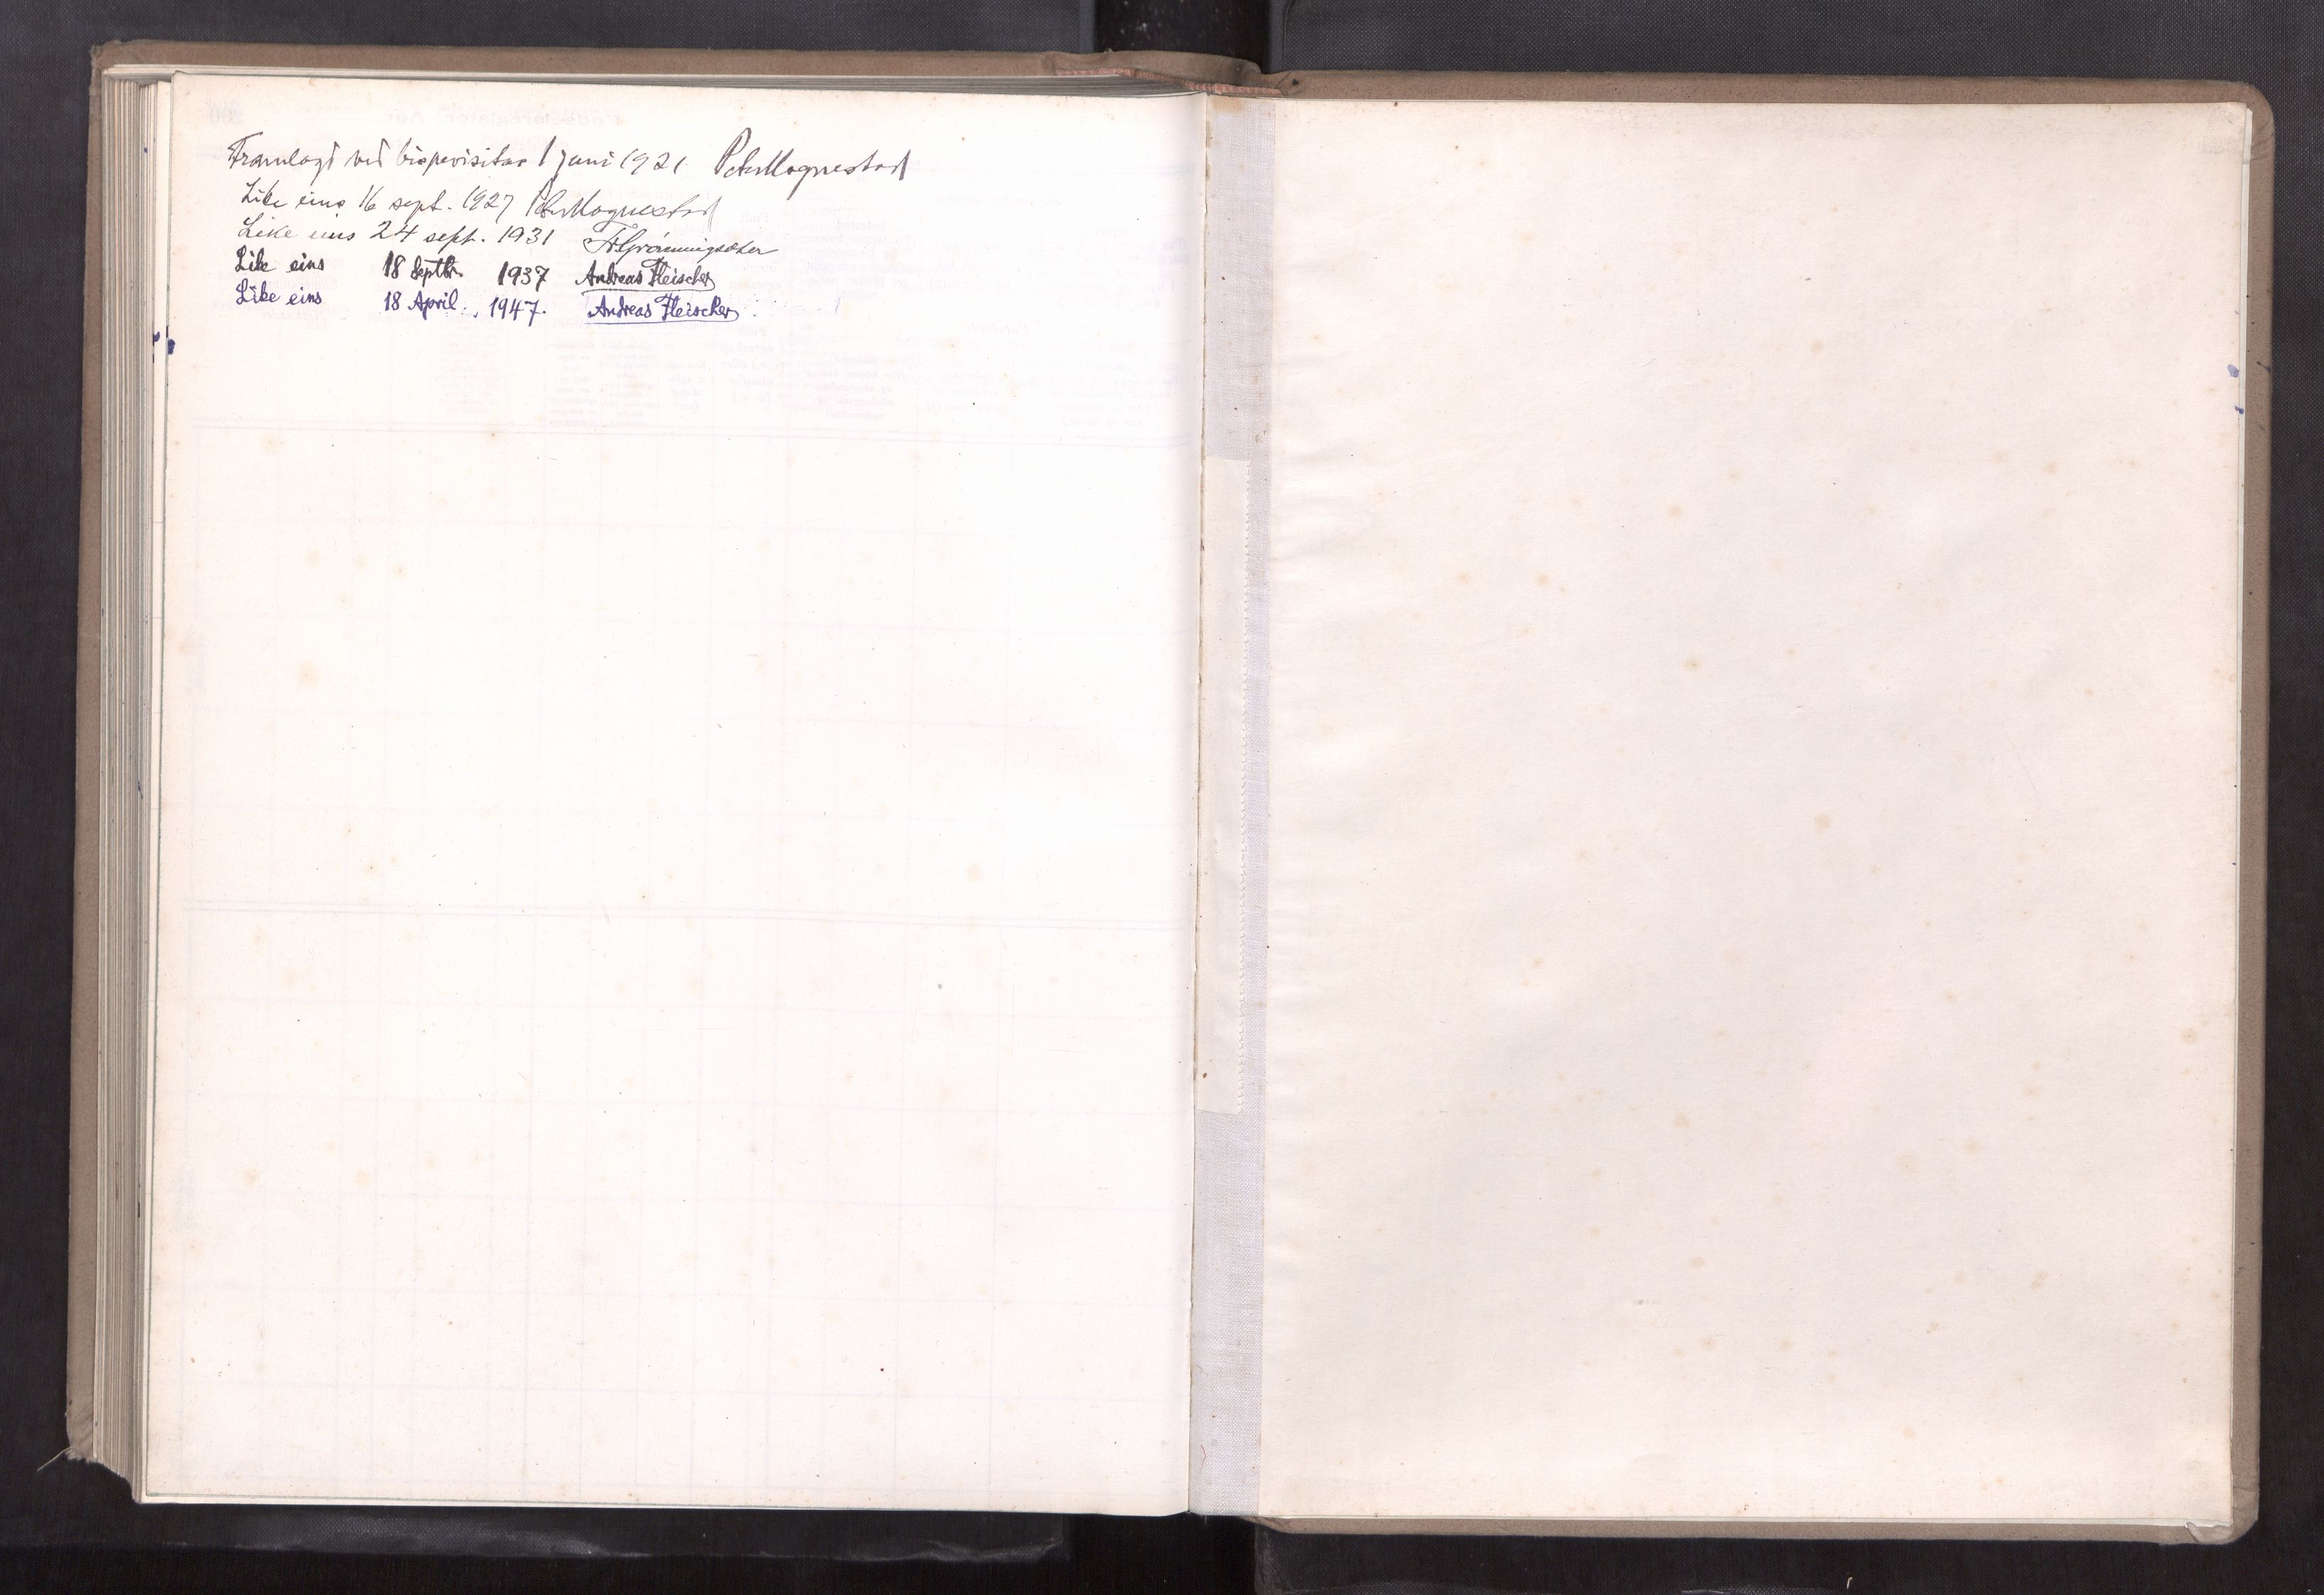 Framlagt ved bispevisitas 1 juni 1921 Peter Hognestad
Like eins 16 sept. 1927 Peter Hognestad
Like eins 24 sept. 1931
Like eins 18 Septbr. 1937 Andreas Fleischer
Like eins 18 April. 1947. Andreas Fleischer